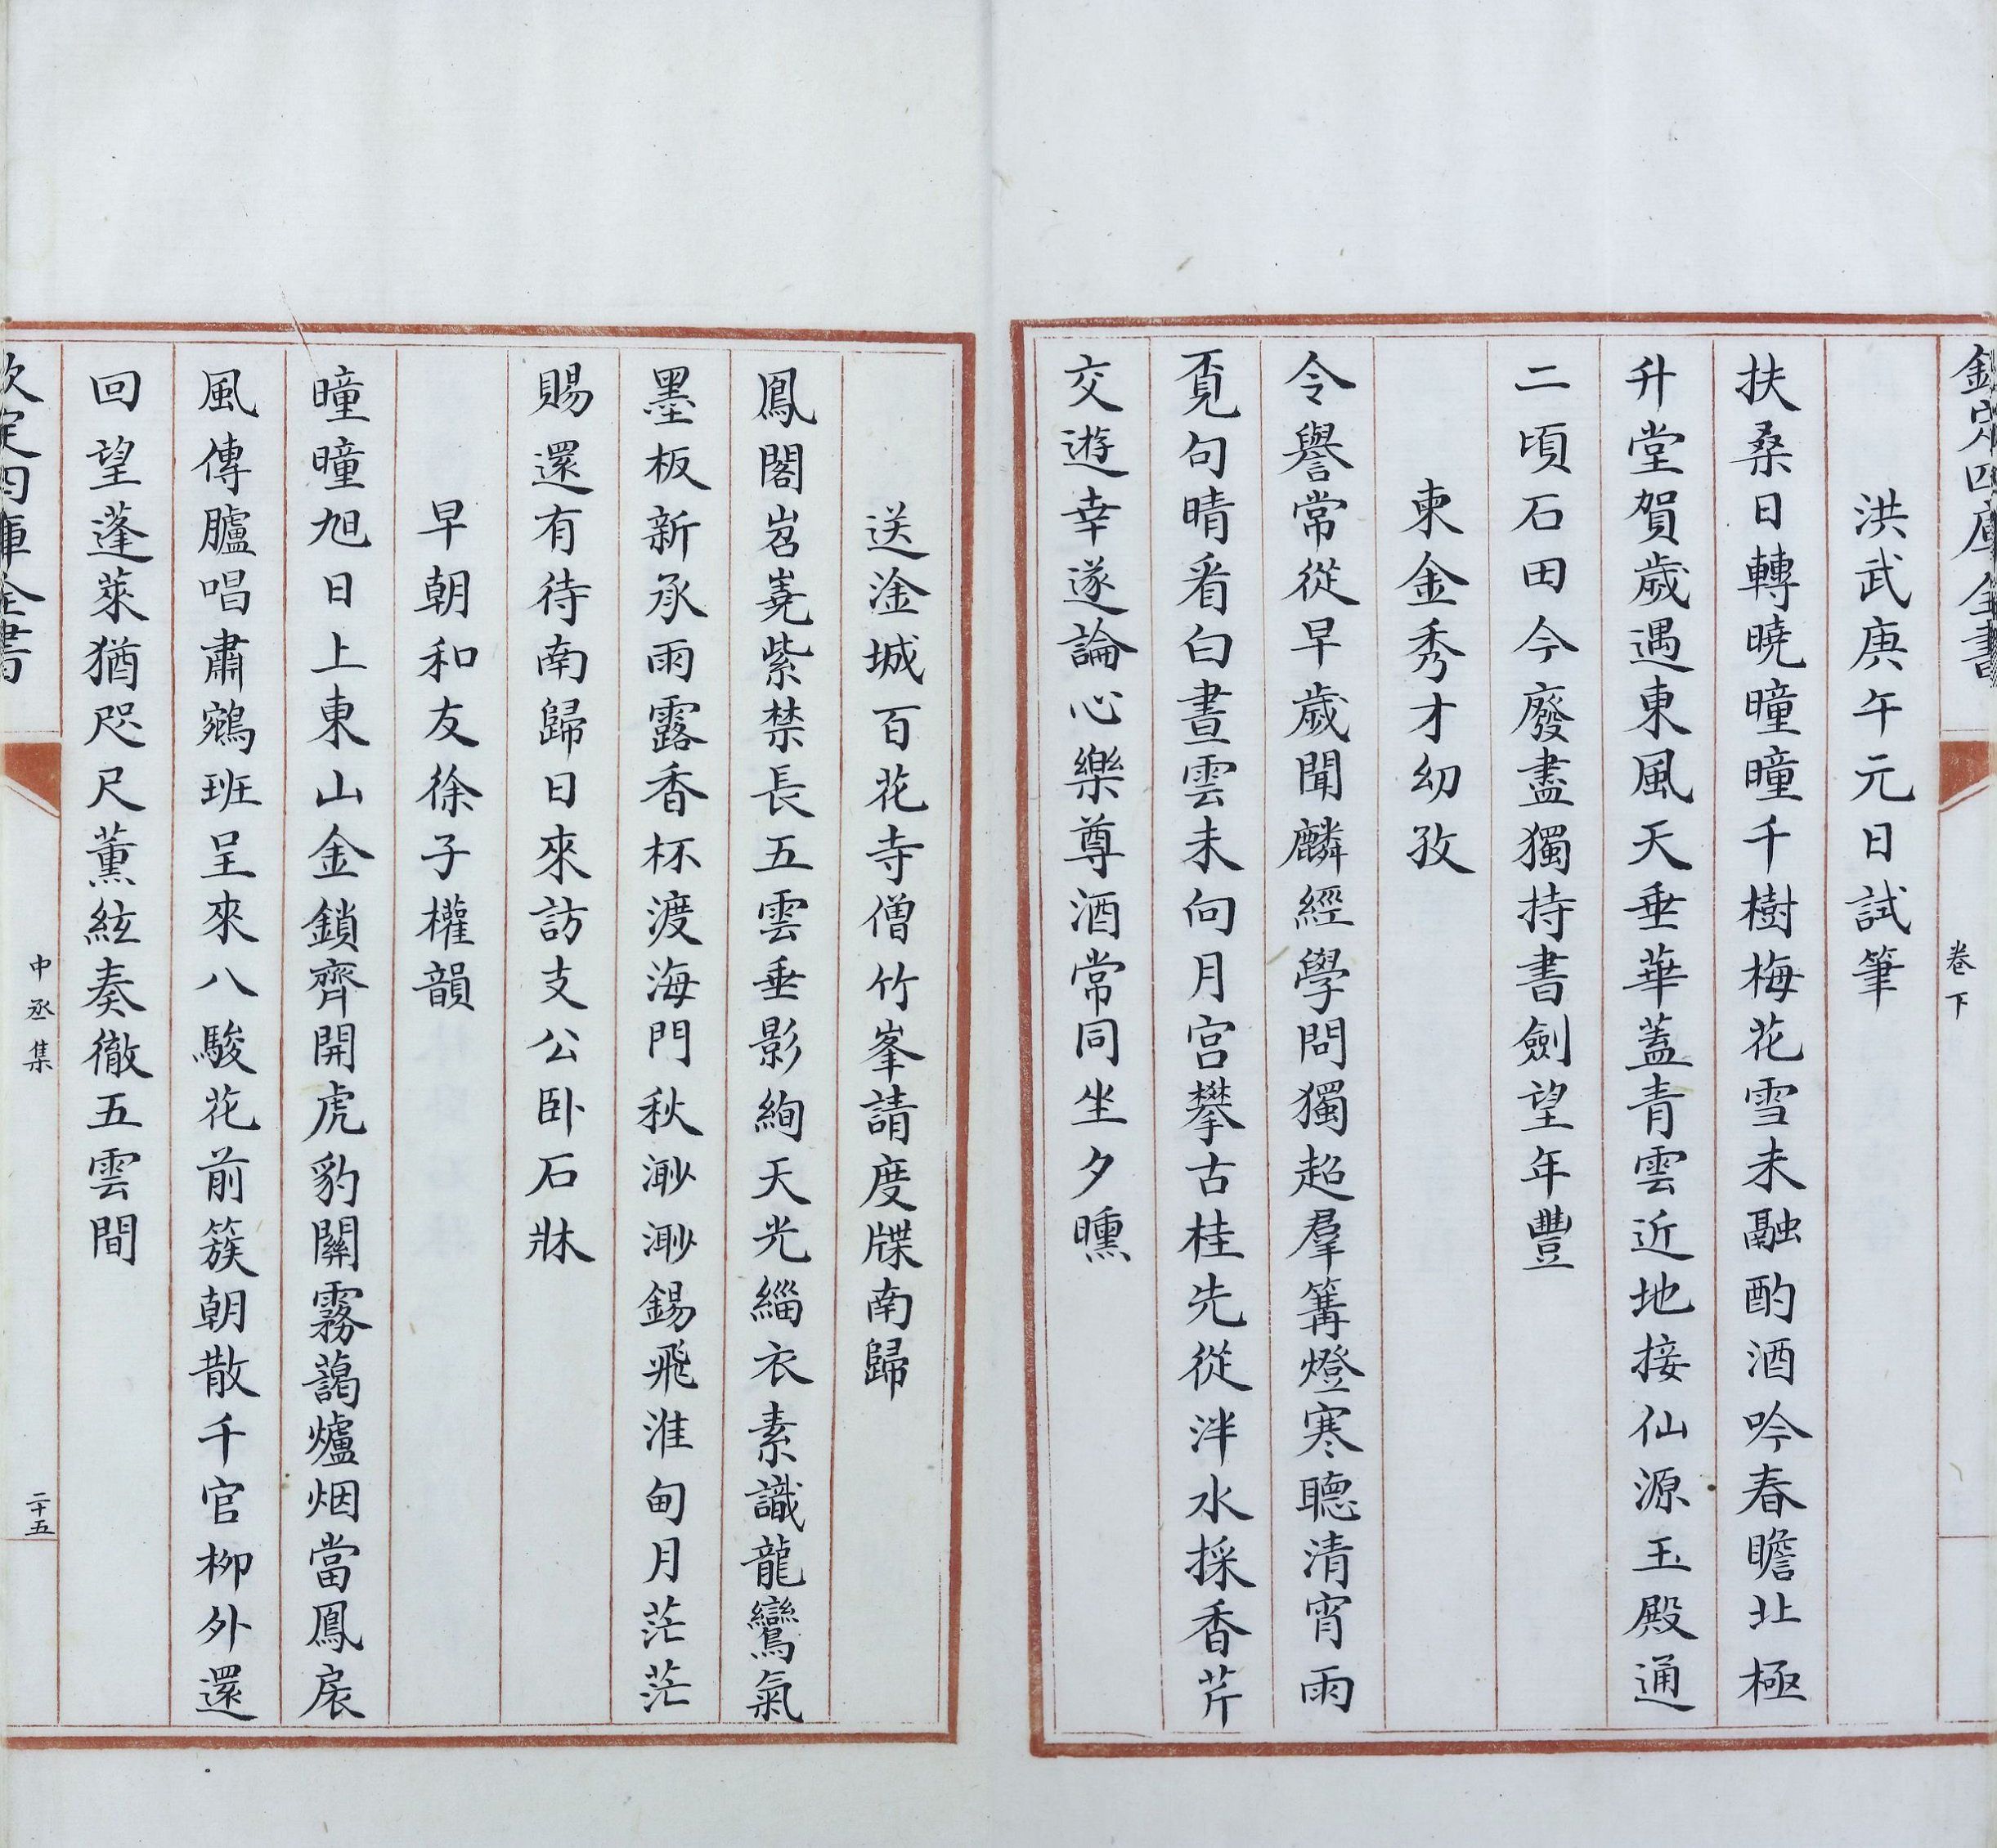 欽定四庫全書
卷下
洪武庚午元日試筆
扶桑日轉曉曈曈千樹梅花雪未融酌酒吟春瞻北極
升堂賀歲遇東風天垂華蓋青雲近地接仙源玉殿通
二頃石田今廢盡獨持書劍望年豐
柬金秀才幼孜
令譽常從早歲聞麟經學問獨超羣篝燈寒聽清宵雨
覔句晴看白晝雲未向月宫攀古桂先從泮水採香芹
交遊幸遂論心樂尊酒常同坐夕曛
送淦城百花寺僧竹峯請度牒南歸
鳳閣岧嶤紫禁長五雲垂影絢天光緇衣素識龍鸞氣
墨板新承雨露香杯渡海門秋渺渺錫飛淮甸月茫茫
賜還有待南歸日來訪支公卧石牀
早朝和友徐子權韻
曈曈旭日上東山金鎖齊開虎豹關霧藹爐烟當鳳扆
風傳臚唱肅鵷班呈來八駿花前簇朝散千官柳外還
回望蓬萊猶咫尺薰絃奏徹五雲間
欽定四庫全書
中丞集
二十五